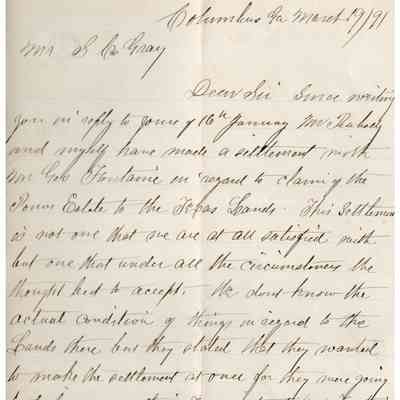 Columbus Ga March 19/91
Mr S C Gray
Dear Sir Since writing
you in reply to yours of 16th January Mr Peabody
and myself have made a settlement with
Mr Geo Fontaine in regard to claim of the
Estate to the Texas Lands. This settlement
is not one that we are at all satisfied with
but one that under all the circumstances the
thought best to accept. We dont know the
actual condition of things in regard to the
Lands there but they stated that they wanted
to make the settlement at once for they were going